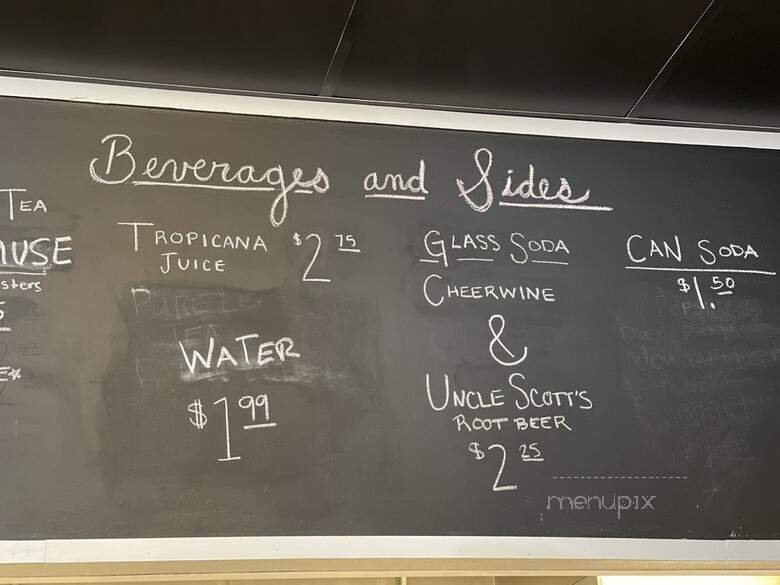 Beverages and Sides
TEA
USE
sters
TROPICANA $2.75
JUICE
WATER
$1.99
GLASS SODA
CHEERWINE
&
UNCLE SCOTT'S
ROOT BEER
$2.25
CAN SODA
$1.50
menupix